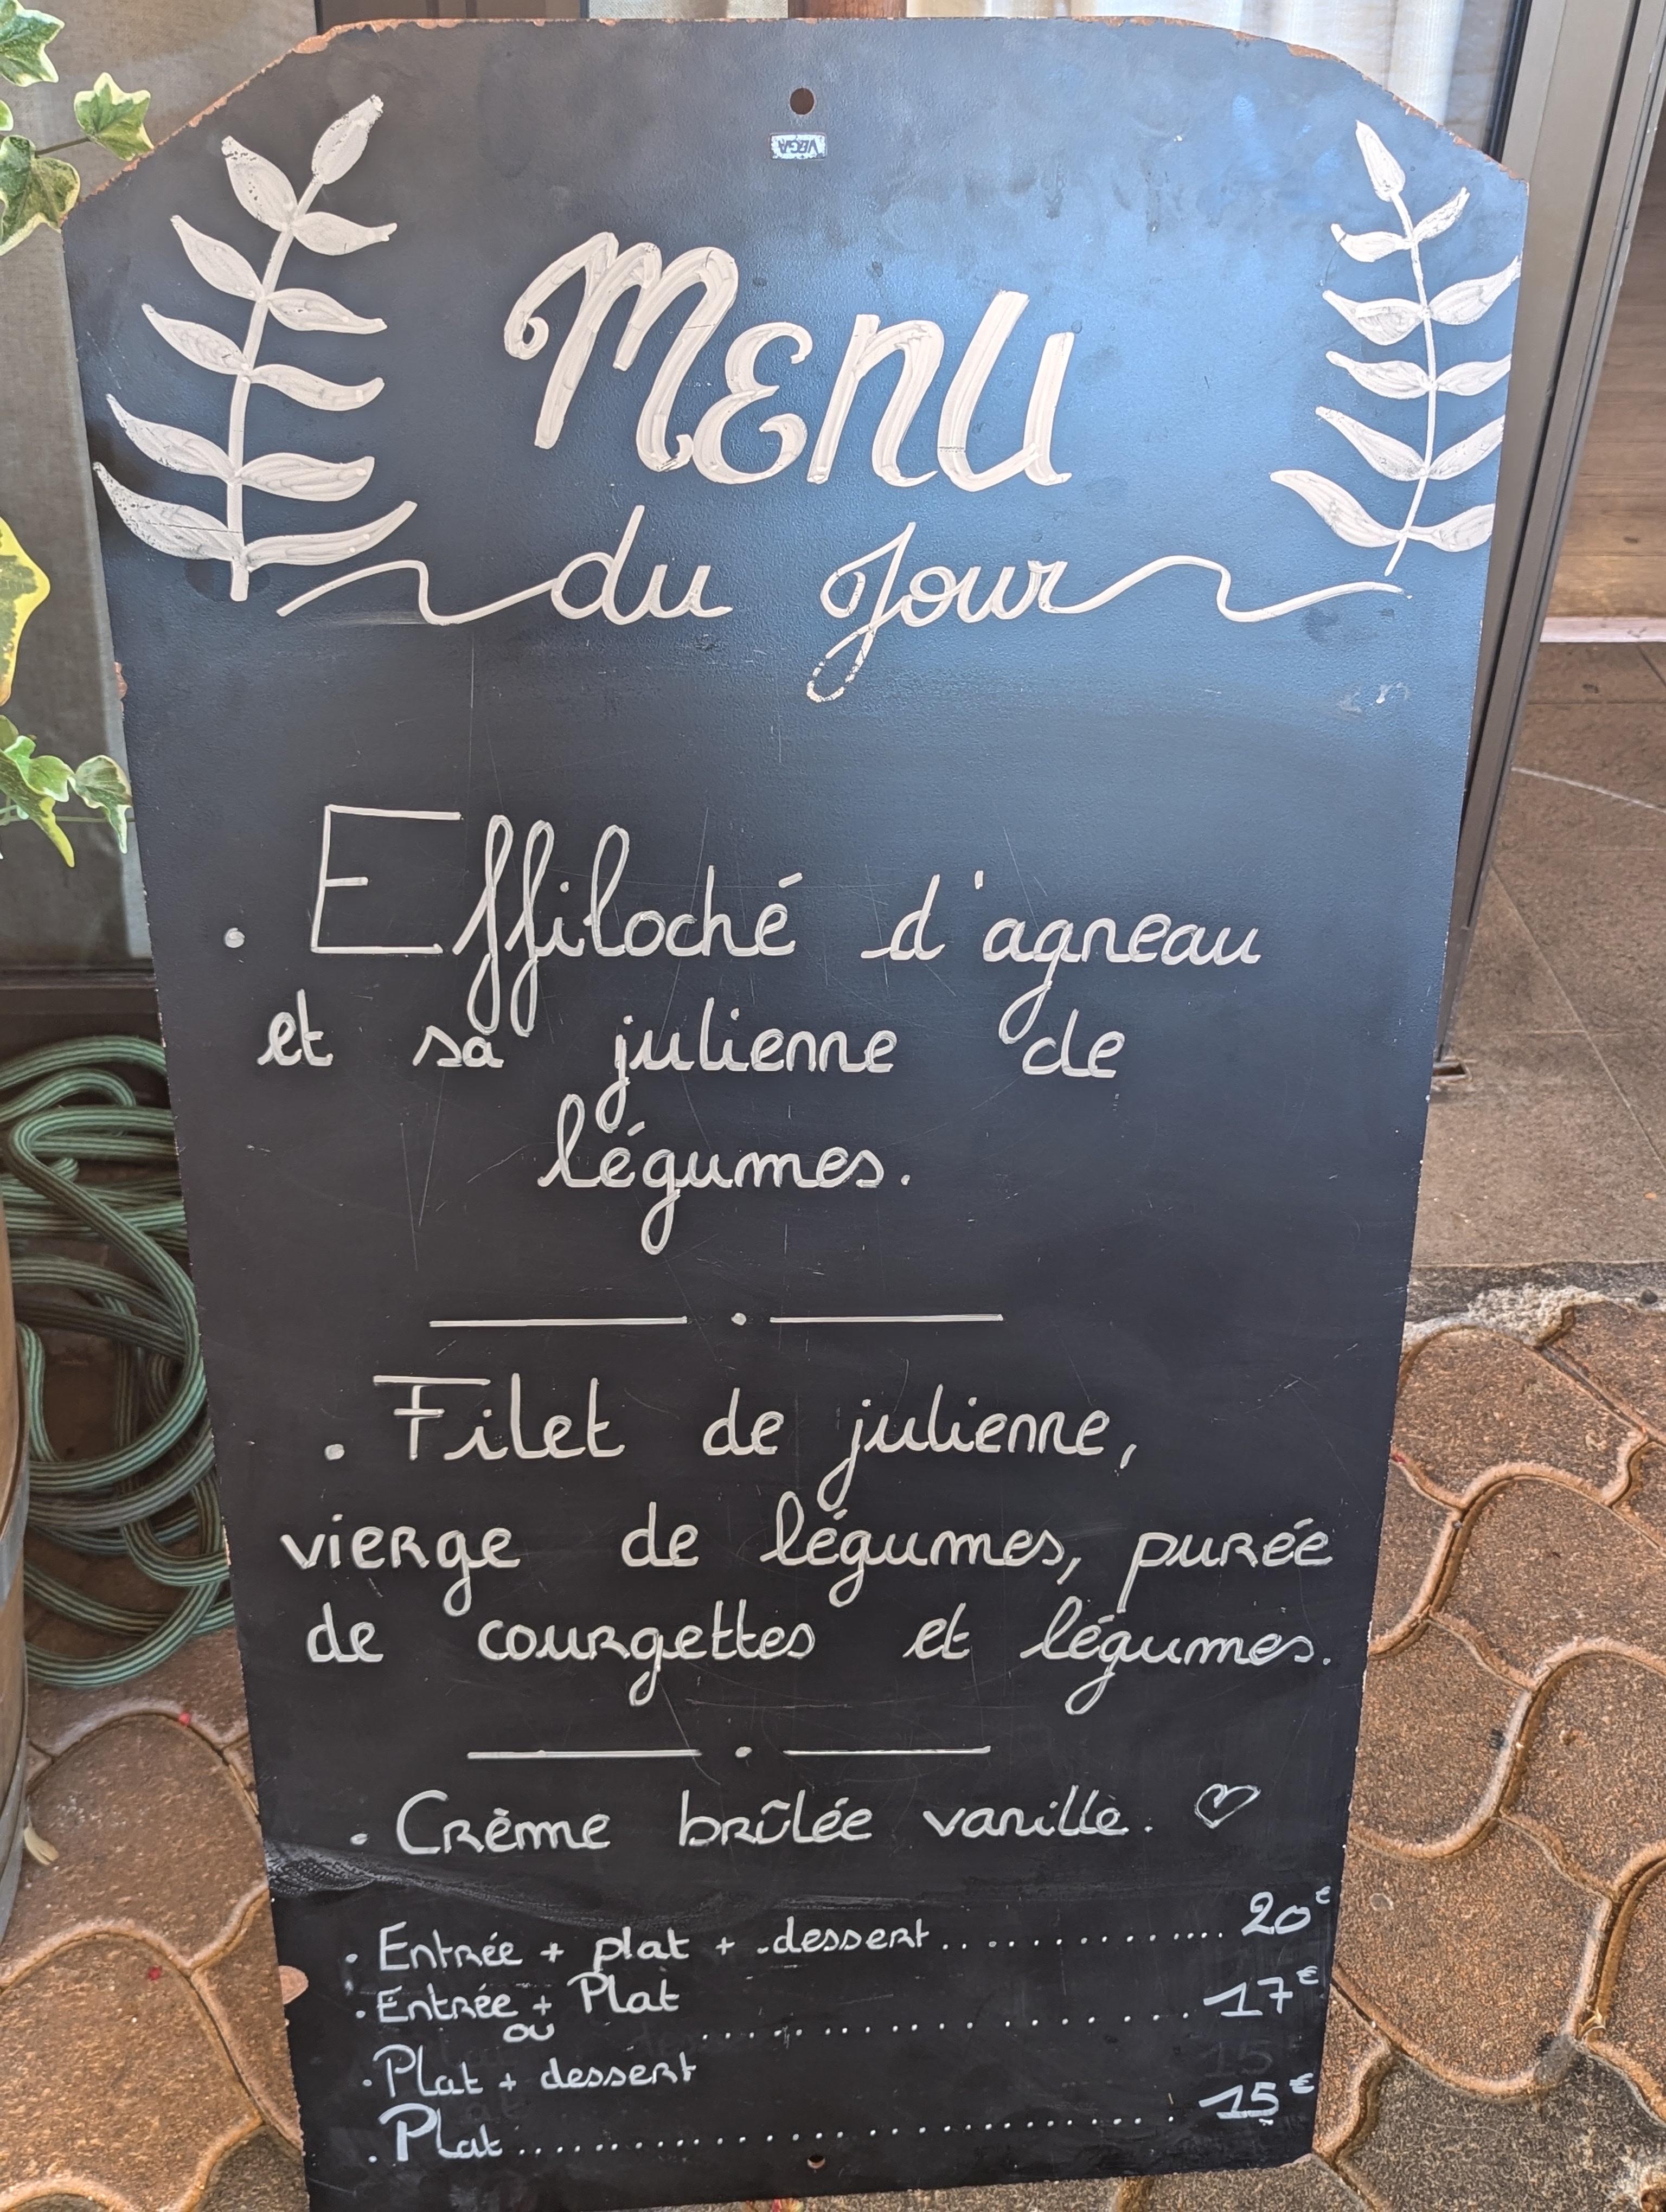 VEGA
Menu
du Jour
. Effiloché d'agneau
et sa julienne de
légumes.
. Filet de julienne,
vierge de légumes, purée
de courgettes et légumes.
. Crème brûlée vanille. ♡
. Entrée + plat + dessert................ 20€
. Entrée + Plat
ou .................... 17€
. Plat + dessert
. Plat.............................. 15€